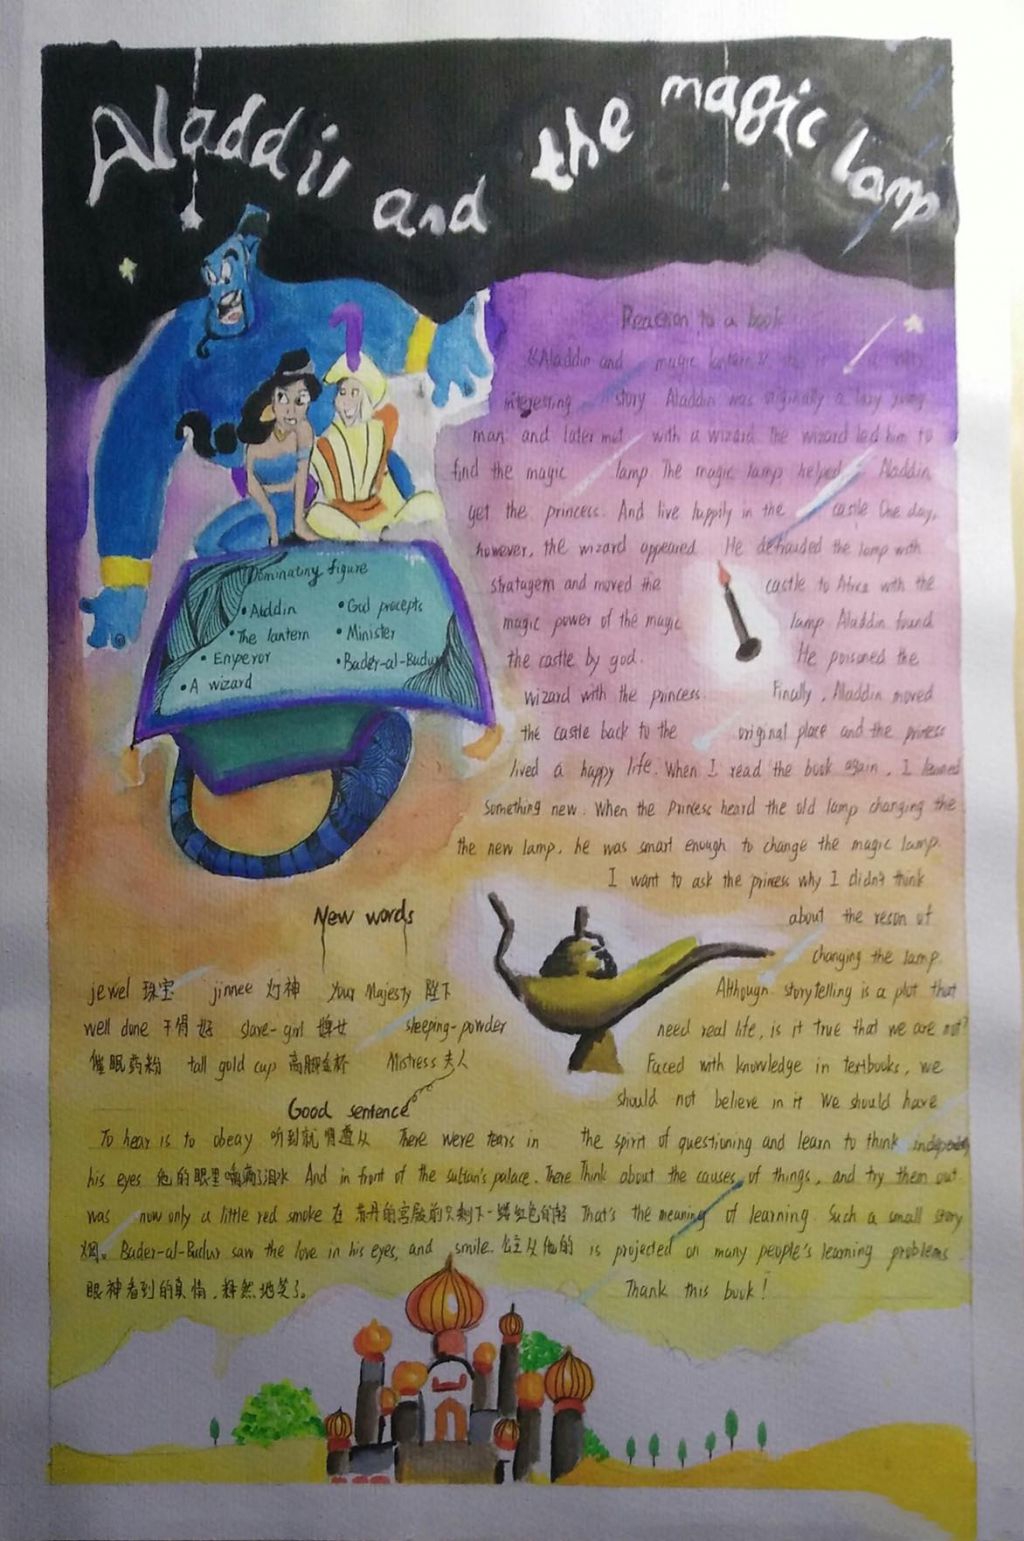 Aladdin and the magic lamp
Reaction to a book
《Aladdin and magic lantern》 is a very
interesting story Aladdin was originally a lazy young
man and later met with a wizard. The wizard led him to
find the magic lamp The magic lamp helped Aladdin
get the princess. And live happily in the castle One day,
however, the wizard appeared He defrauded the lamp with
stratagem and moved the castle to Africa with the
magic power of the magic lamp Aladdin found
the castle by god. He poisoned the
wizard with the princess. Finally, Aladdin moved
the castle back to the original place and the princess
lived a happy life. When I read the book again, I learned
something new. When the Princess heard the old lamp changing the
the new lamp, he was smart enough to change the magic lamp.
I want to ask the princess why I didn't think
about the reson of
changing the lamp.
Although storytelling is a plot that
need real life, is it true that we are not?
Faced with knowledge in textbooks, we
should not believe in it We should have
the spirit of questioning and learn to think
Think about the causes of things, and try them out
That's the meaning of learning. Such a small story
is projected on many people's learning problems
Thank this book!
Dominating figure
•Aladdin •God precepts
•The lantern •Minister
•Emperor •Bader-al-Budur
•A wizard
New words
jewel 珠宝 jinnee 灯神 Your Majesty 陛下
well done 干得好 slave-girl 婢女 sleeping-powder
催眠药粉 tall gold cup 高脚金杯 Mistress 夫人
Good sentence
To hear is to obeay 听到就 遵从 There were tears in
his eyes 他的眼里 滴了泪水 And in front of the sultan's palace. There
was now only a little red smoke 在 苏丹的宫殿前只剩下一缕红色的
烟。 Bader-al-Budur saw the love in his eyes, and smile. 公主从他的
眼神看到的真情，释然地笑了。